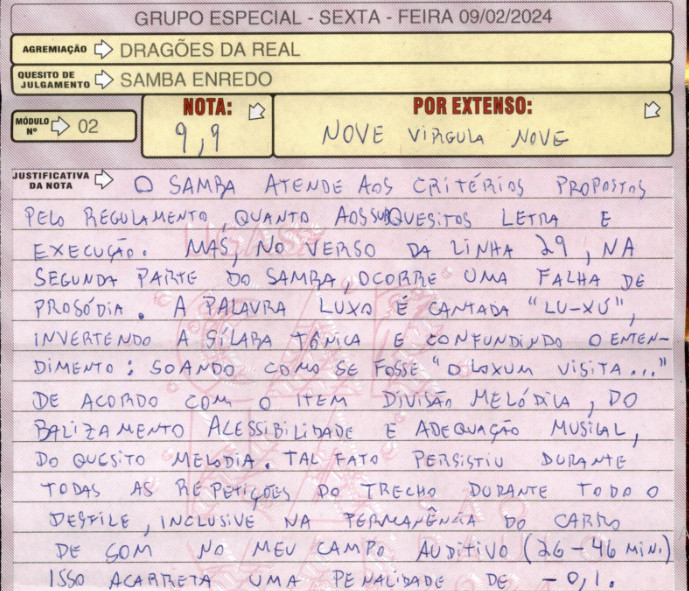 GRUPO ESPECIAL - SEXTA - FEIRA 09/02/2024
AGREMIAÇÃO DRAGÕES DA REAL
QUESITO DE JULGAMENTO SAMBA ENREDO
MÓDULO Nº 02
NOTA: 9,9
POR EXTENSO: NOVE VIRGULA NOVE
JUSTIFICATIVA DA NOTA O SAMBA ATENDE AOS CRITÉRIOS PROPOSTOS
PELO REGULAMENTO QUANTO AOS SUBQUESITOS LETRA E
EXECUÇÃO. MAS, NO VERSO DA LINHA 29, NA
SEGUNDA PARTE DO SAMBA, OCORRE UMA FALHA DE
PROSÓDIA. A PALAVRA LUXO É CANTADA "LU-XÚ",
INVERTENDO A SÍLABA TÔNICA E CONFUNDINDO O ENTEN-
DIMENTO: SOANDO COMO SE FOSSE "O LOXUM VISITA..."
DE ACORDO COM O ITEM DIVISÃO MELÓDICA, DO
BALIZAMENTO ACESSIBILIDADE E ADEQUAÇÃO MUSICAL,
DO QUESITO MELODIA. TAL FATO PERSISTIU DURANTE
TODAS AS REPETIÇÕES DO TRECHO DURANTE TODO O
DESFILE, INCLUSIVE NA PERMANÊNCIA DO CARRO
DE SOM NO MEU CAMPO AUDITIVO (26-46 MIN.)
ISSO ACARRETA UMA PENALIDADE DE -0,1.